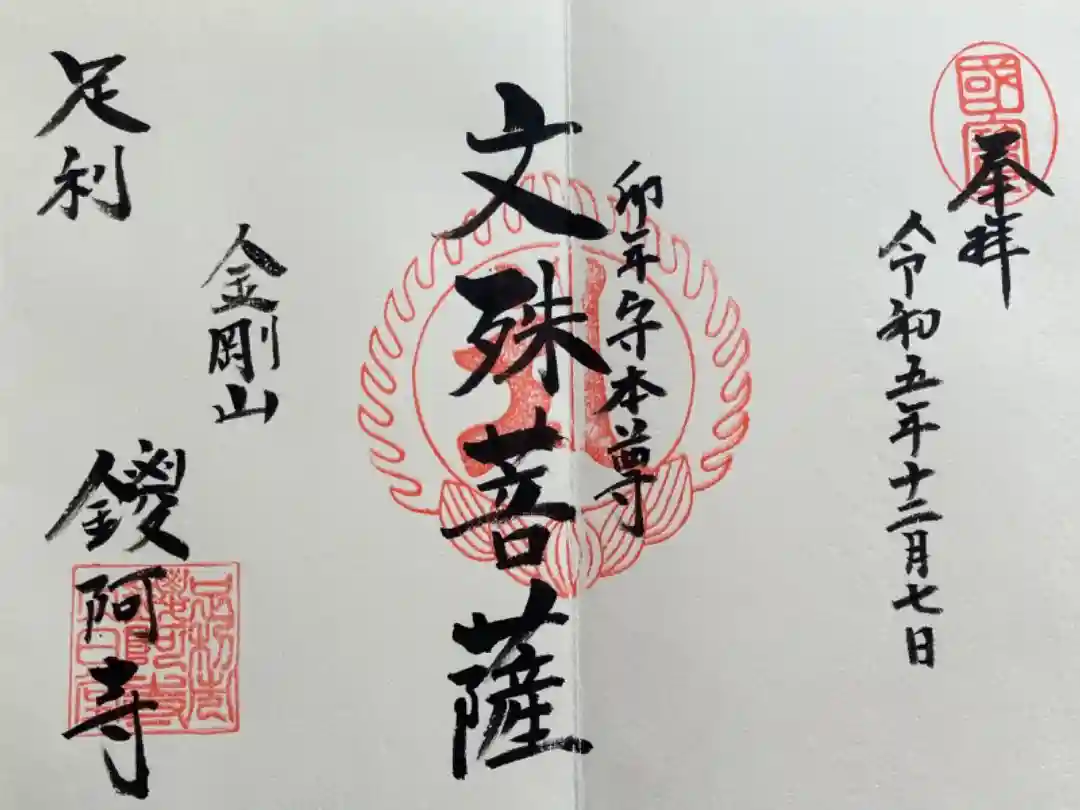 國寳
奉拝
令和五年十二月七日
卯年守本尊
文殊菩薩
金剛山
足利
鑁阿寺